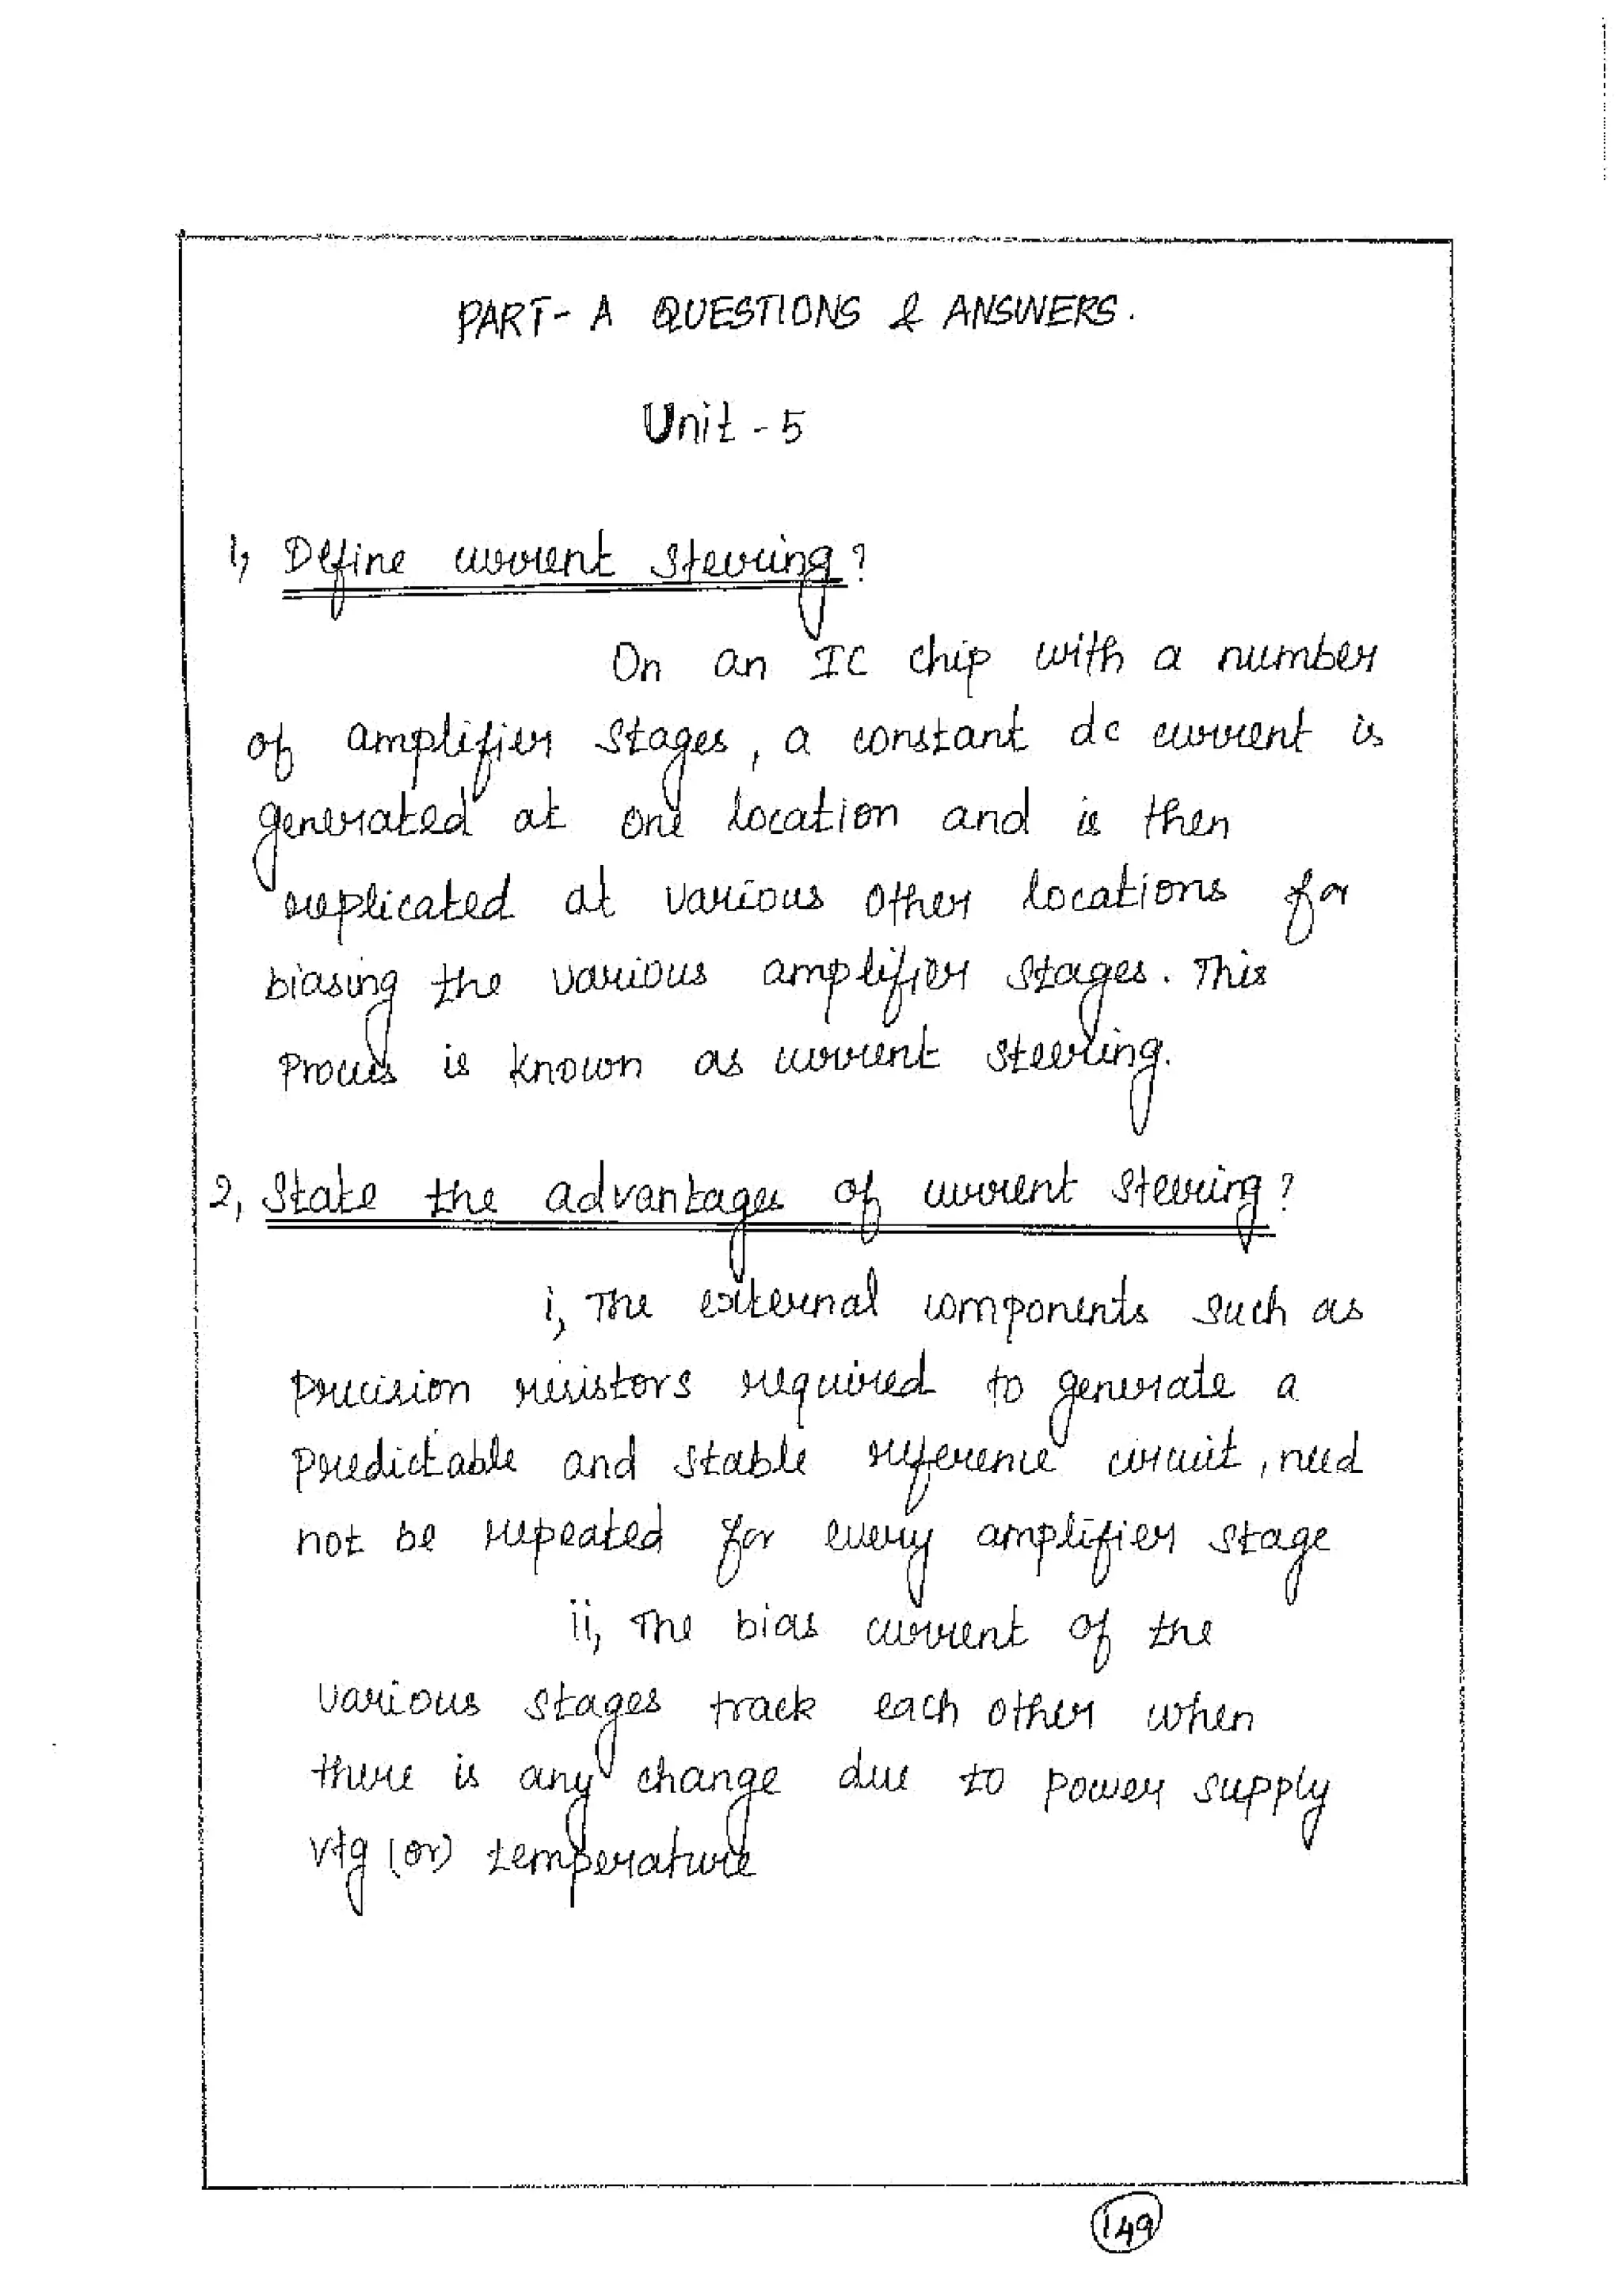 PART- A QUESTIONS & ANSWERS.
Unit - 5
1, Define current steering?
On an IC chip with a number
of amplifier stages, a constant dc current is
generated at one location and is then
replicated at various other locations for
biasing the various amplifier stages. This
process is known as current steering.
2, State the advantages of current steering?
i, The external components such as
precision resistors required to generate a
predictable and stable reference circuit, need
not be repeated for every amplifier stage
ii, The bias current of the
various stages track each other when
there is any change due to power supply
vtg (or) temperature
149